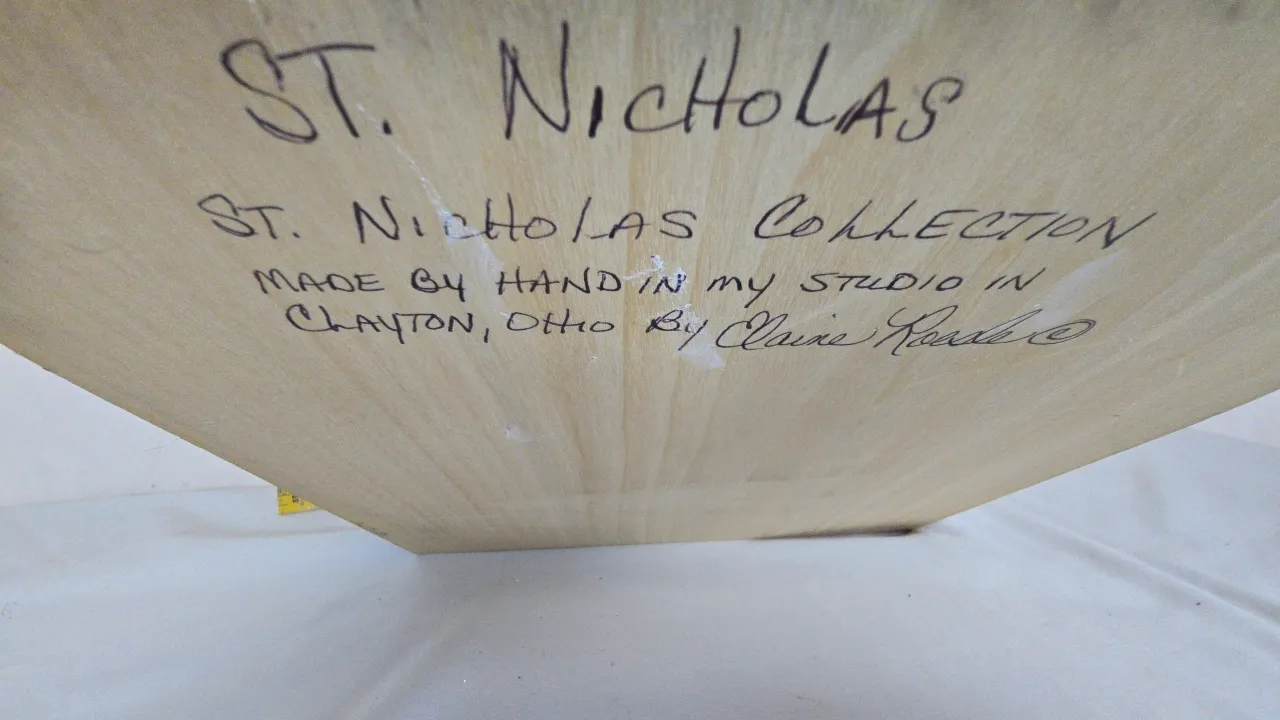 ST. NICHOLAS
ST. NICHOLAS COLLECTION
MADE BY HAND IN MY STUDIO IN
CLAYTON, OHIO BY Elaine ©